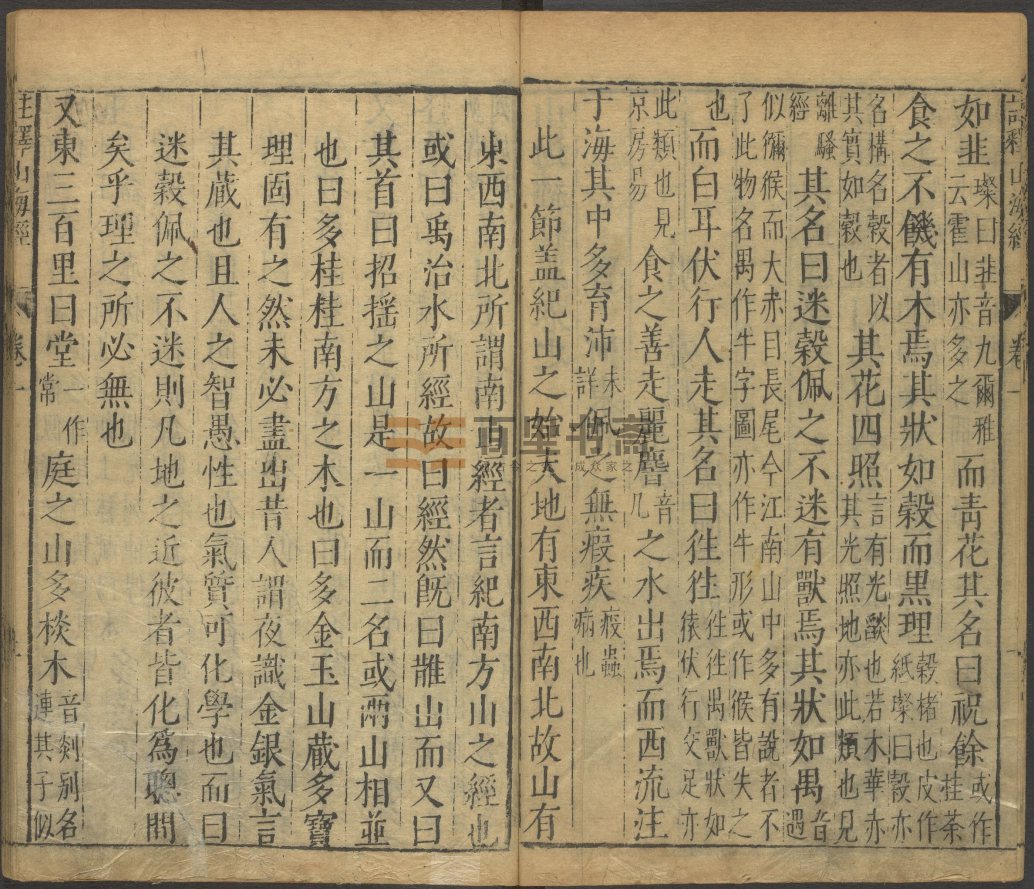 註釋山海經 卷一
如韭璨曰韭音九爾雅云霍山亦多之而青花其名曰祝餘或作桂荼
食之不饑有木焉其狀如榖而黑理榖楮也皮作紙璨曰榖亦
名構名榖者以其實如榖也其花四照言有光燄也若木華亦其光照地亦此類也見
離騷經其名曰迷榖佩之不迷有獸焉其狀如禺音遇
似獼猴而大赤目長尾今江南山中多有說者不了此物名禺作牛字圖亦作牛形或作猴皆失之
也而白耳伏行人走其名曰狌狌狌狌禺獸狀如猿伏行交足亦
此類也見京房易食之善走麗𪊨音几之水出焉而西流注
于海其中多育沛未詳佩之無瘕疾瘕蟲病也
此一節盖紀山之始天地有東西南北故山有
東西南北所謂南山經者言紀南方山之經也
或曰禹治水所經故曰經然旣曰䧿出而又曰
其首曰招揺之山是一山而二名或兩山相並
也曰多桂桂南方之木也曰多金玉山藏多寶
理固有之然未必盡出昔人謂夜識金銀氣言
其藏也且人之智愚性也氣質可化學也而曰
迷榖佩之不迷則凡地之近彼者皆化爲聰明
矣乎理之所必無也
又東三百里曰堂一作常庭之山多棪木音剡别名連其子似
註釋山海經 卷一
百里书斋